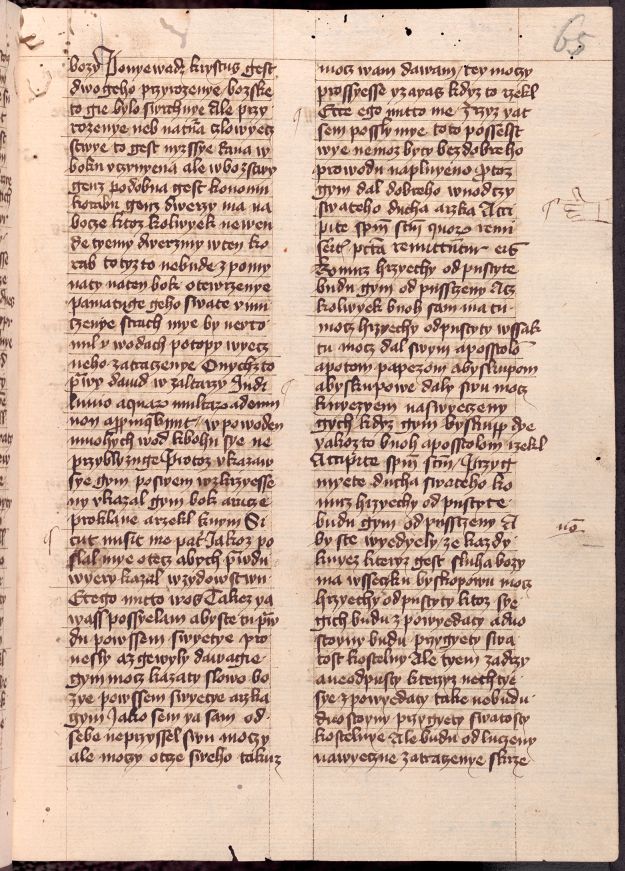 65
bozy Ponyewadz krystus gest
dwogeho przyrozenye bozske
to gie bylo swrchnye Ale przy
rozenye neb natura czlowyecz
stwye to gest nyzssye krna w
boku vczynyena ale wbozstwy
genz podobna gest konomu
korabu genz dwerzy ma na
bocze ktoz kolwyek newen
de tyemy dwerzmy w ten ko
rab totyz to nebude z pomy
naty naten bok otewrzenye
pamatuge geho swate vmu
czenye strach mye by neuto
nul v wodach potopy wyecz
neho zatraczenye Onychzto
prwy dauid w zaltarzy In di
luuio aquarum multarum ad eum
non approximabunt w powoden
mnohych wod kbohu sye ne
przyblyzuge Protoz vkazaw
sye gym po swem wzkrzyesse
ny vkazal gym bok a rucze
proklane a rzekl knym Si
cut misit me pater Jakoz po
slal mye otecz abych prawdu
wyery kazal w zydowstwu
Et ego mitto uos Takez ya
wass possyelam abyste tu praw
du po wssem swyetye pro
nesly az gewyly dawagie
gym mocz kazaty slowo bo
zye po wssem swyetye arzka
gym Jako sem ya sam od
sebe neprzyssel swu moczy
ale moczy otcze sweho takuz
mocz wam dawam tey moczy
prossyesse yzayas kdyz to rzekl
Ecce ego mitto me Zrzyz yat
sem possly mye toto posselst
wye nemoz byty bez dobreho
prowodu naplnyeno Protoz
gym dal dobreho wuodczy
swateho ducha arzka Acci
pite spiritum sanctum quorum remi
seritis peccata remittuntur eis
Komuz hrzyechy odpustyte
budu gym odpusstzeny Acz
kolwyek buoh sam ma tu
mocz hrzyechy odpustyty wssak
tu mocz dal swym aposstolom
apotom papezom abyskupom
abyskupowe daly swu mocz
knyezyem naswyeczeny
gych kdyz gym byskupp dye
yakoz to buoh aposstolom rzekl
Accipite spiritum sanctum Przyg
myete ducha swateho ko
muz hrzyechy odpustyte
budu gym odpusstzeny A
by ste wyedyely ze kazdy
knyez kteryz gest sluha bozy
ma wsseczku byskopowu mocz
hrzyechy odpustyty ktoz sye
gich budu zpowyedaty a duo
stoyny budu przygyety swa
tost kostelny Ale tyem zadrzy
aneodpusty kterzyz nechtye
sye zpowyedaty take nebudu
duostoyny przygyety swatosty
kostelnye Ale budu odluczeny
nawyeczne zatraczenye skrze